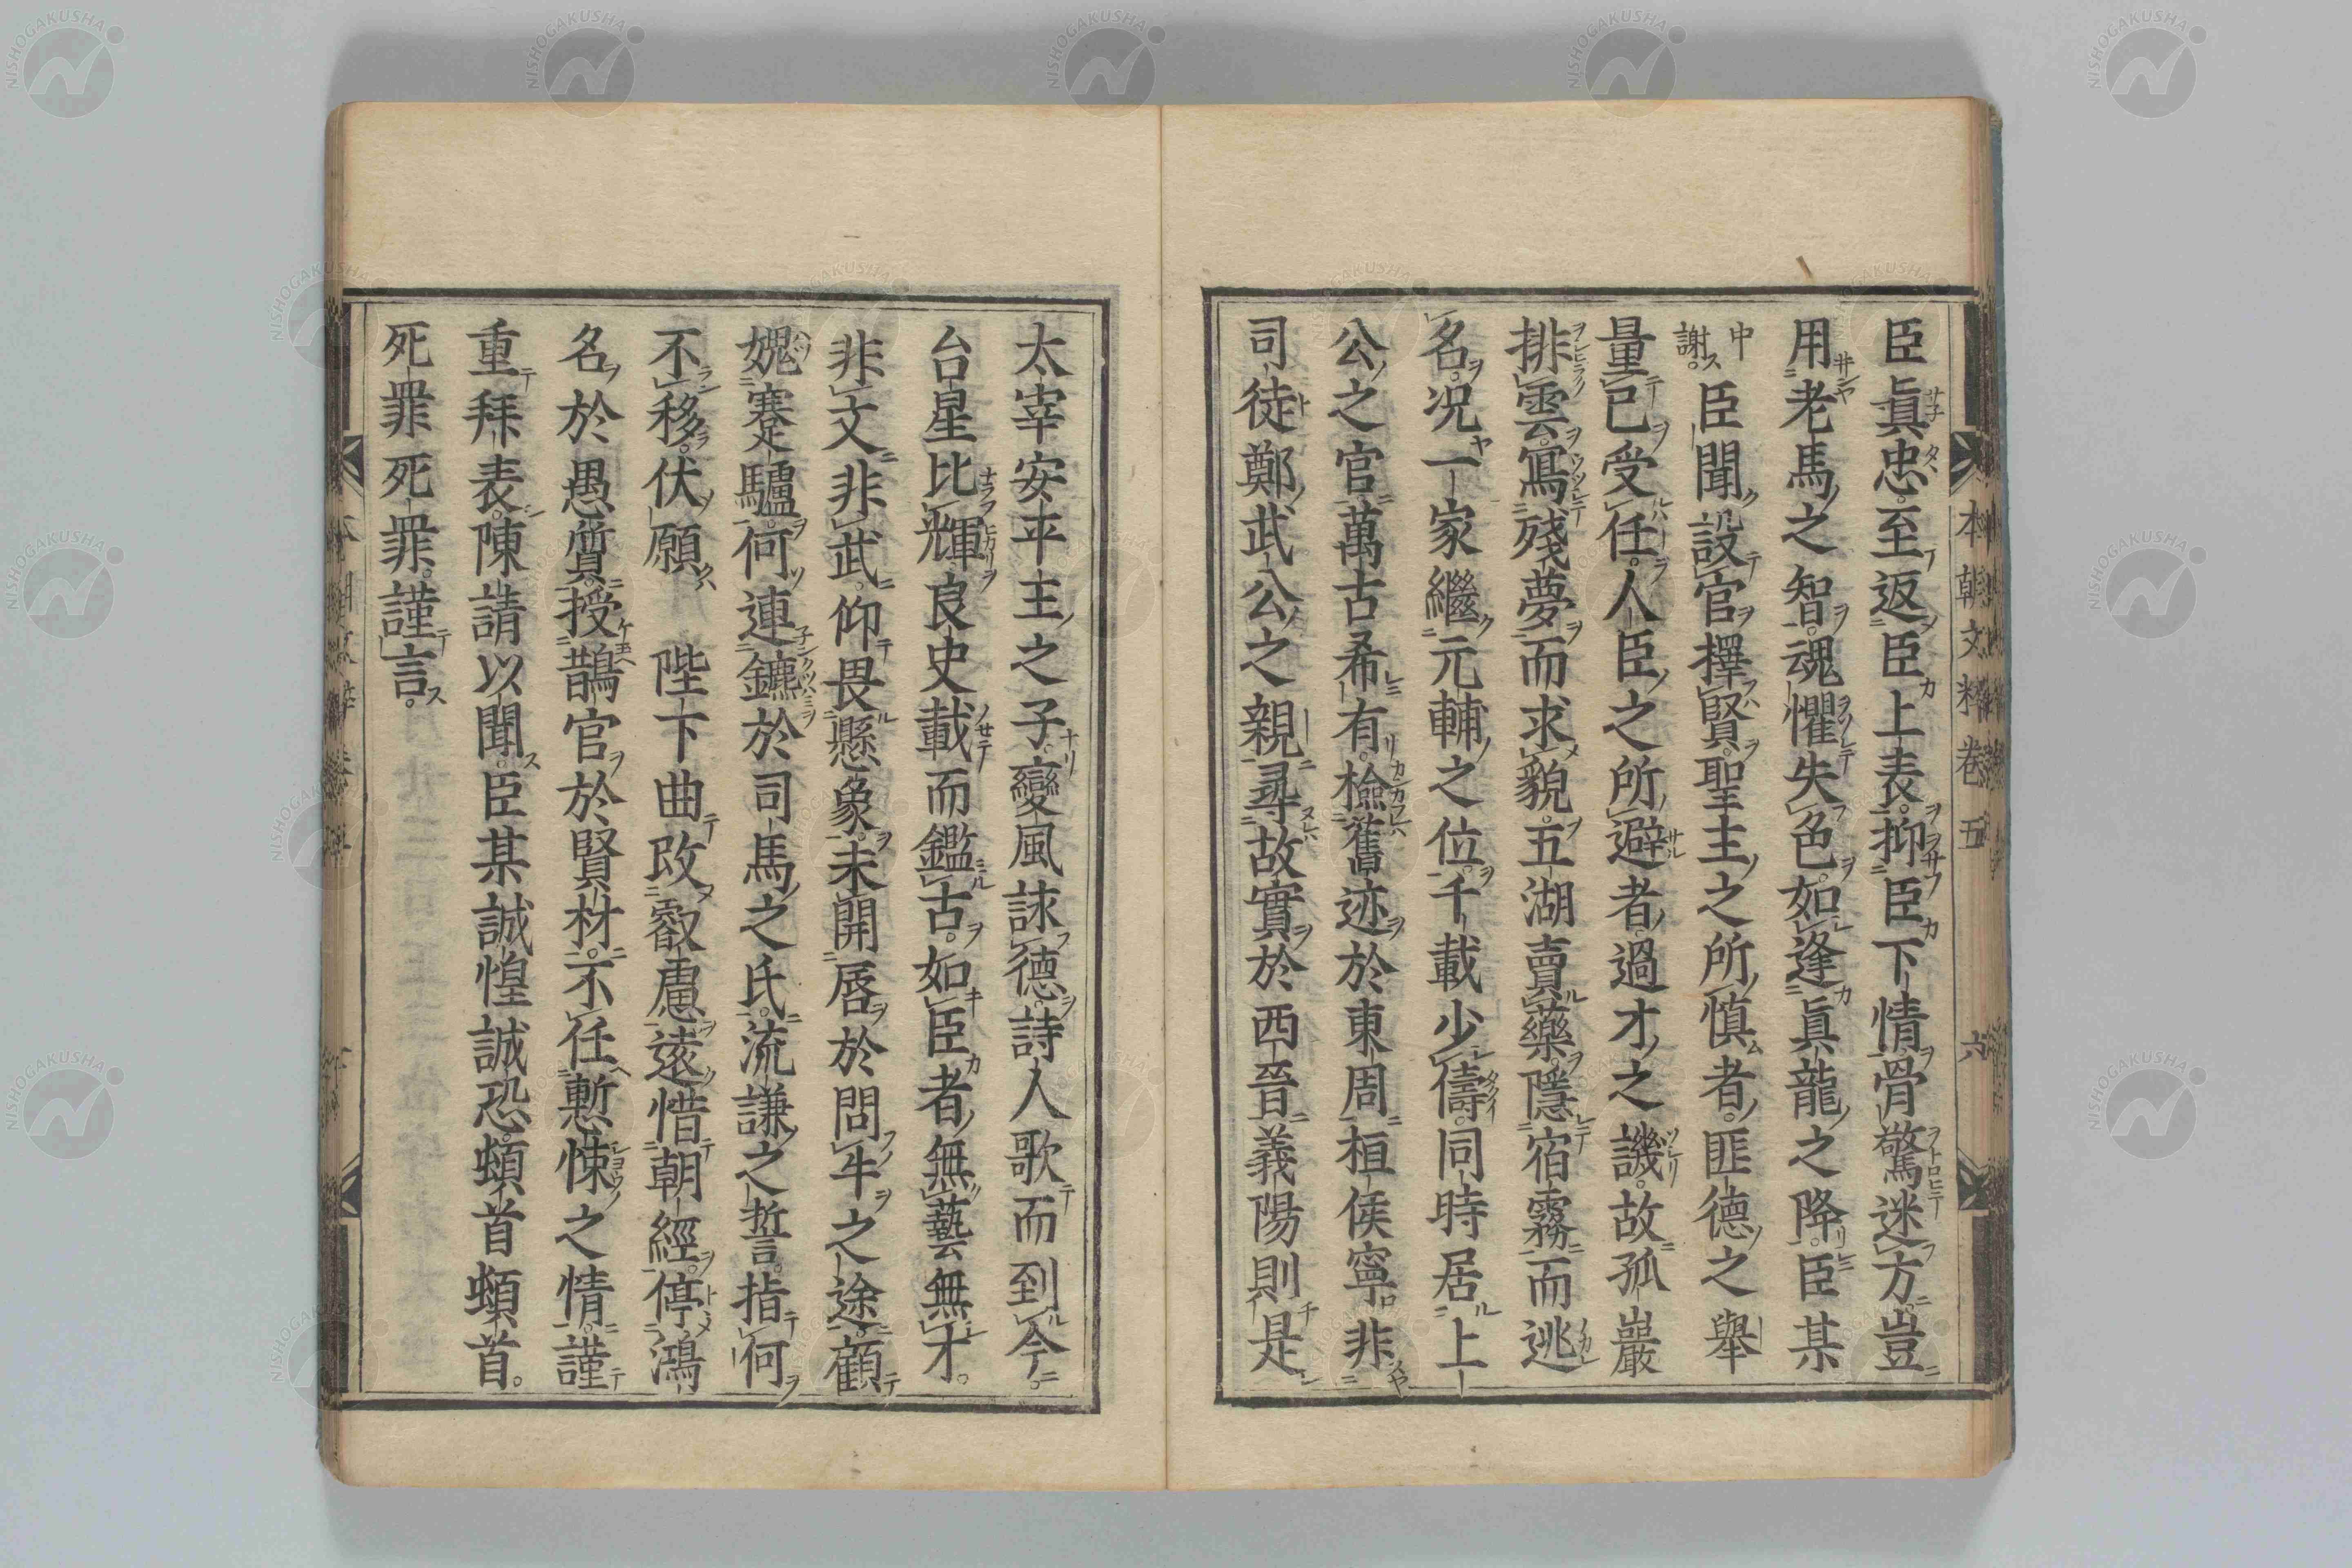 臣眞忠。至返臣上表。抑臣下情。骨驚迷方。豈
用老馬之智。魂懼失色。如逢眞龍之降。臣某
中謝。臣聞。設官擇賢。聖主之所愼者。匪德之舉
量己受任。人臣之所避者。過才之譏。故孤巖
排雲。寫殘夢而求貌。五湖賣藥。隱宿霧而逃
名。況一家繼元輔之位。千載少儔。同時居上
公之官。萬古希有。檢舊迹於東周。桓侯寧非
司徒鄭武公之親。尋故實於西晉。義陽則是
太宰安平主之子。變風詠德。詩人歌而到今。
台星比輝。良史載而鑑古。如臣者。無藝無才。
非文非武。仰畏懸象。未開唇於問牛之途。顧
媿蹇驢。何連鑣於司馬之氏。流謙之誓。指何
不移。伏願 陛下曲改叡慮。遠惜朝經。停鴻
名於愚質。授鵲官於賢材。不任慙悚之情。謹
重拜表。陳請以聞。臣某誠惶誠恐。頓首頓首。
死罪死罪。謹言。
本朝文粹卷五 六